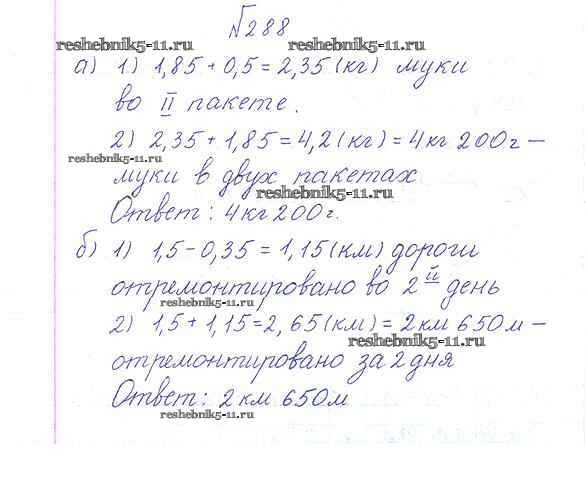 √288
reshebnik5-11.ru reshebnik5-11.ru
а) 1) 1,85 + 0,5 = 2,35 (кг) муки
во II пакете.
2) 2,35 + 1,85 = 4,2 (кг) = 4кг 200г –
reshebnik5-11.ru
муки в двух пакетах
reshebnik5-11.ru
Ответ: 4кг 200г.
б) 1) 1,5 – 0,35 = 1,15 (км) дороги
отремонтировано во 2й день
reshebnik5-11.ru
2) 1,5 + 1,15 = 2,65 (км) = 2км 650м –
reshebnik5-11.ru
отремонтировано за 2 дня
Ответ: 2км 650м
reshebnik5-11.ru